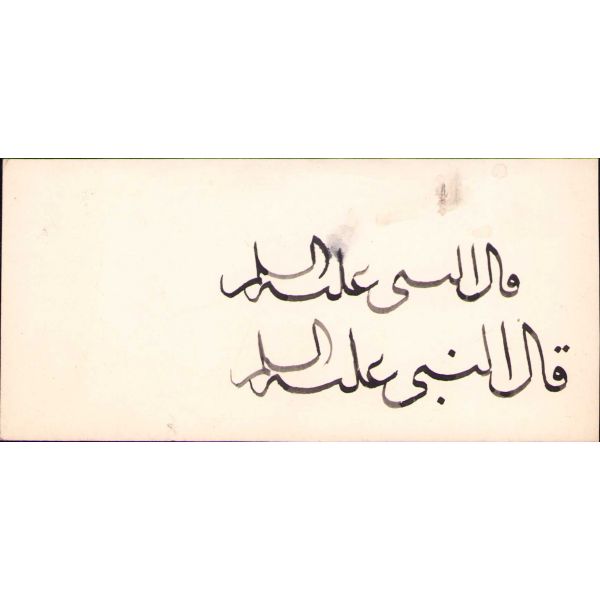 قال النبى عليه السلم
قال النبي عليه السلم